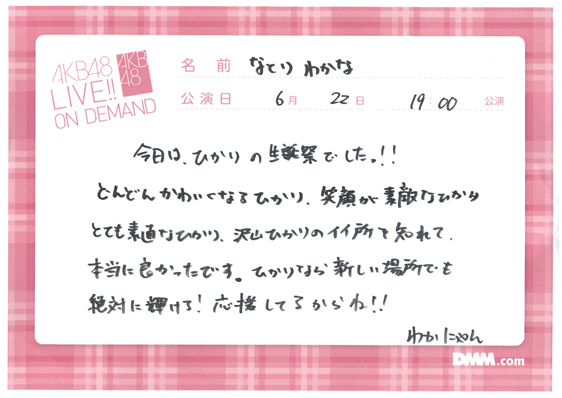 AKB48
LIVE!!
ON DEMAND
AKB
48
名前 なとり わかな
公演日 6月 22日 19:00 公演
今日は、ひかりの生誕祭でした。!!
どんどんかわいくなるひかり、笑顔が素敵なひかり
とても素直なひかり、沢山ひかりのイイ所を知れて、
本当に良かったです。ひかりなら新しい場所でも
絶対に輝ける!応援してるからね!!
わかにゃん
DMM.com